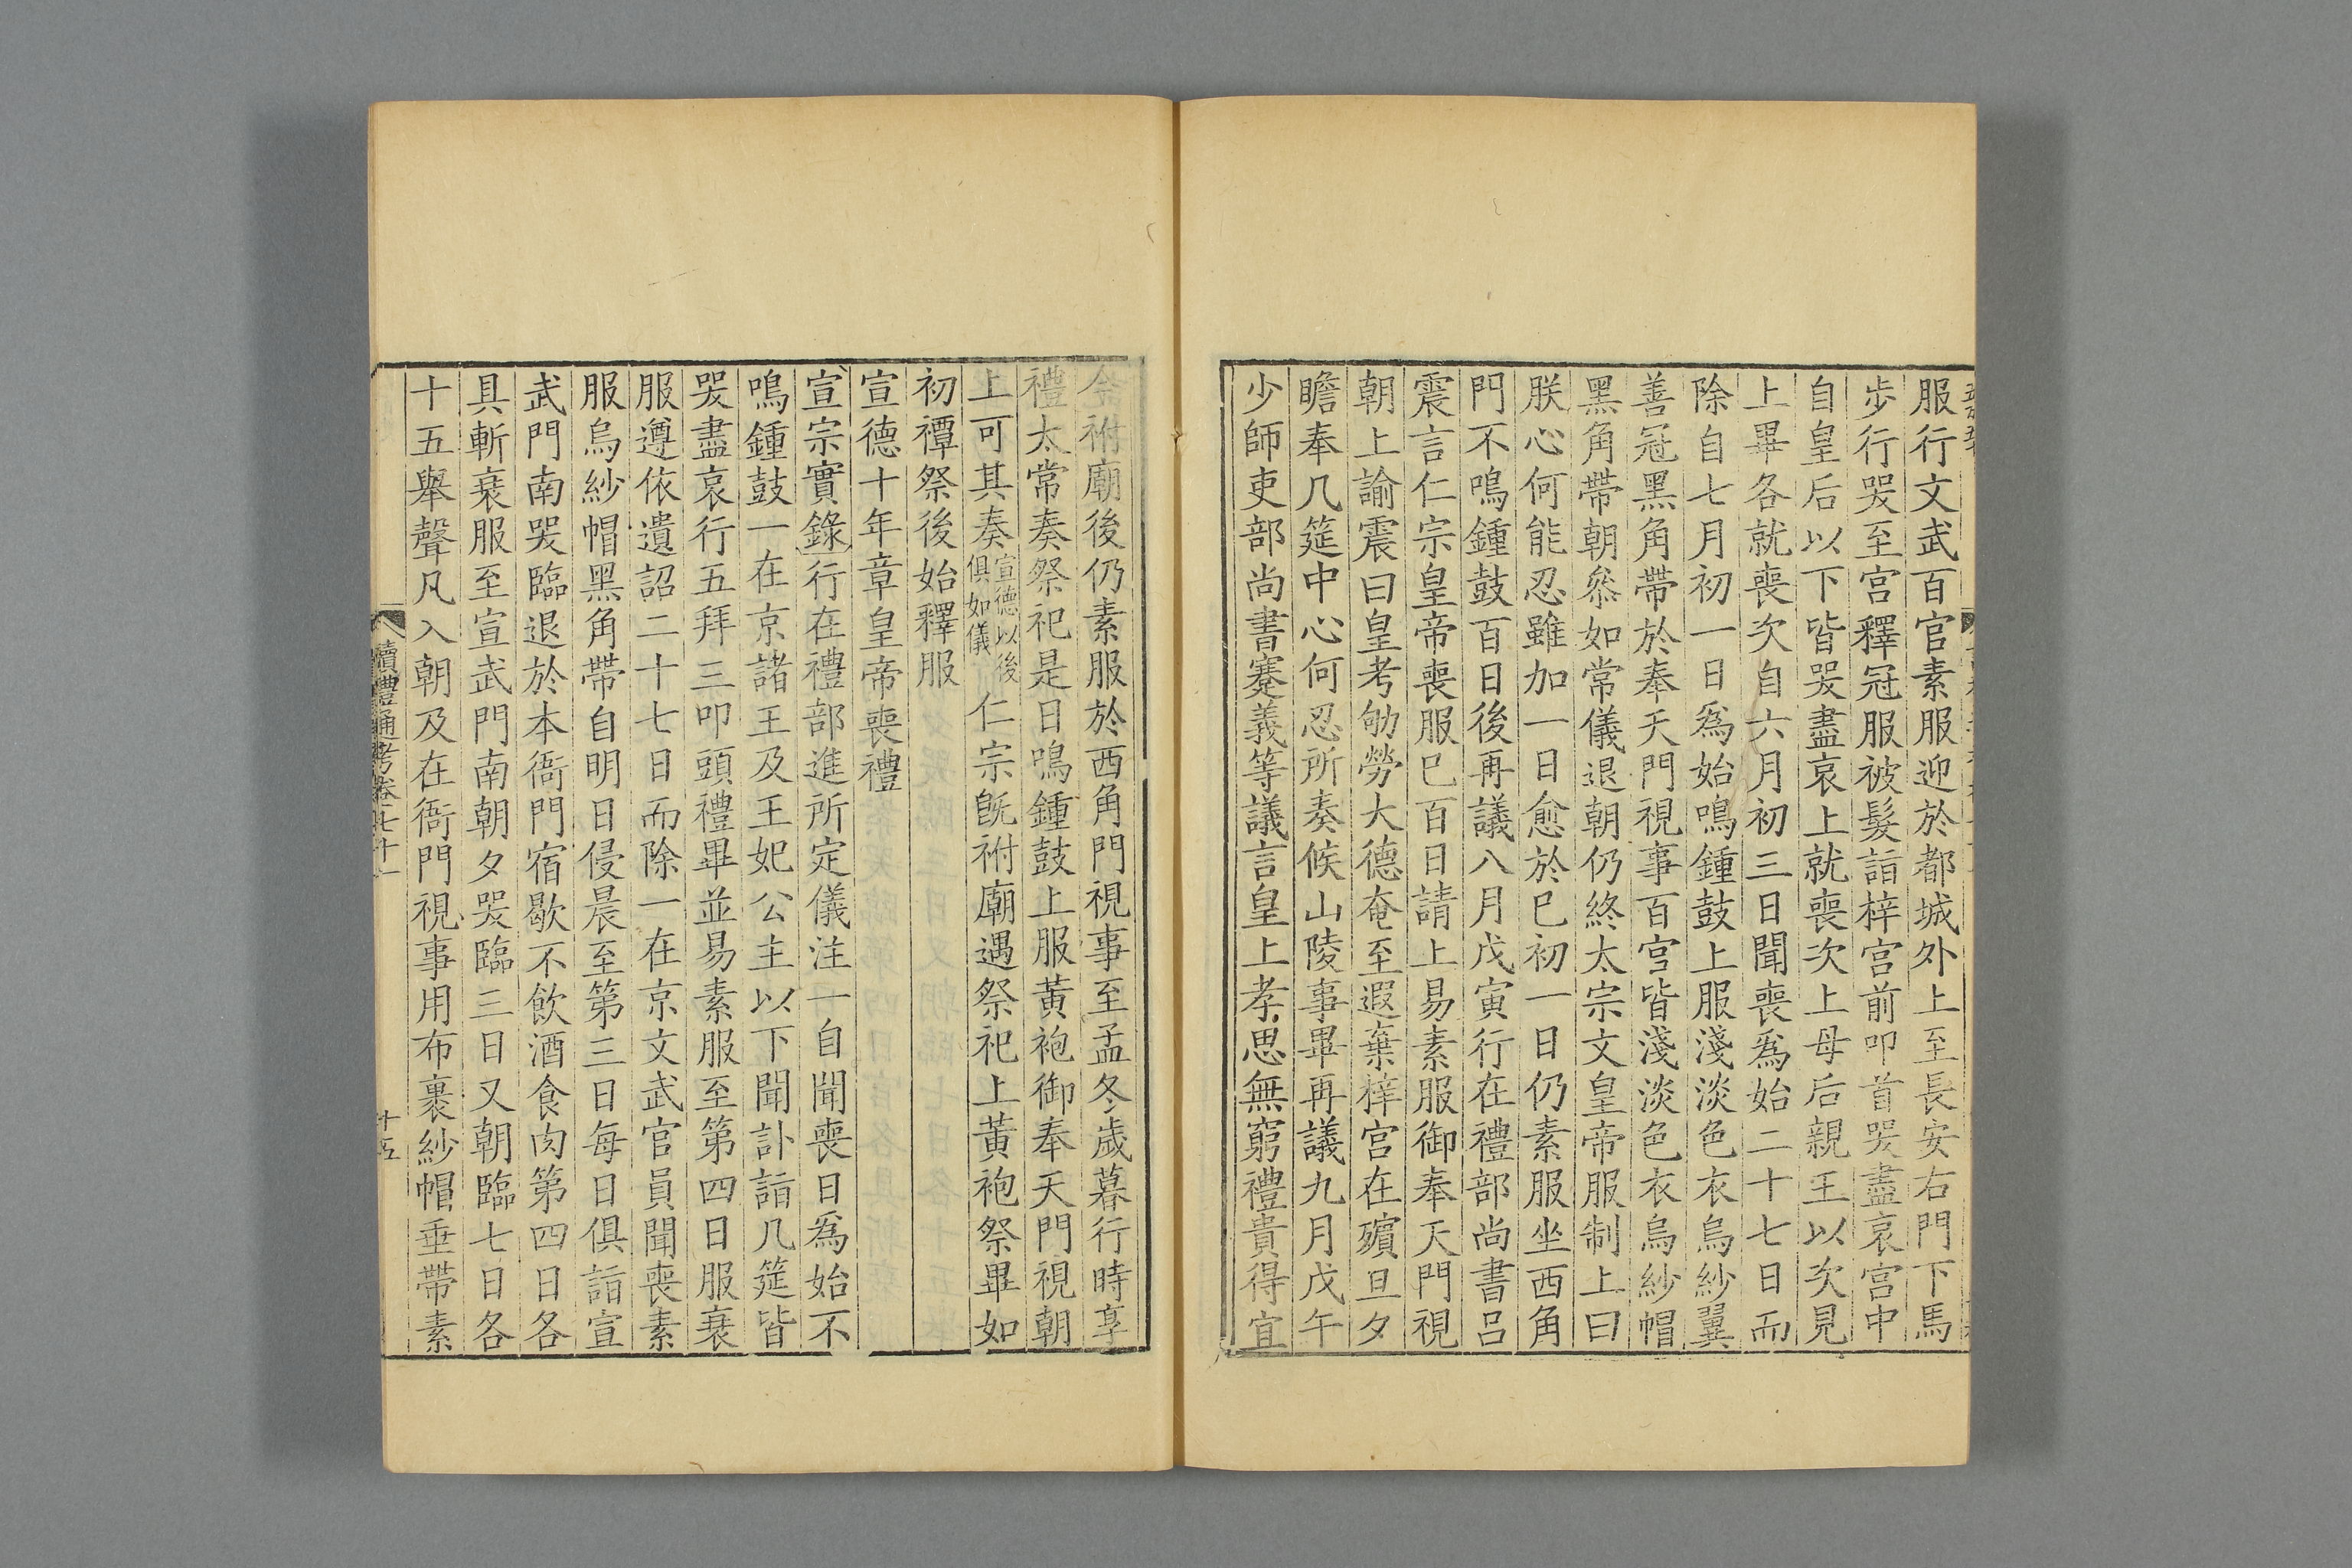 服行文武百官素服迎於都城外上至長安右門下馬
步行哭至宫釋冠服被髮詣梓宫前叩首哭盡哀宫中
自皇后以下皆哭盡哀上就喪次上母后親王以次見
上畢各就喪次自六月初三日聞喪爲始二十七日而
除自七月初一日爲始鳴鍾鼓上服淺淡色衣烏紗翼
善冠黑角帶於奉天門視事百官皆淺淡色衣烏紗帽
黑角帶朝叅如常儀退朝仍終太宗文皇帝服制上曰
朕心何能忍雖加一日愈於已初一日仍素服坐西角
門不鳴鍾鼓百日後再議八月戊寅行在禮部尚書吕
震言仁宗皇帝喪服已百日請上易素服御奉天門視
朝上諭震曰皇考劬勞大德奄至遐棄梓宫在殯旦夕
瞻奉几筵中心何忍所奏候山陵事畢再議九月戊午
少師吏部尚書蹇義等議言皇上孝思無窮禮貴得宜
祔廟後仍素服於西角門視事至孟冬歲暮行時享
禮太常奏祭祀是日鳴鍾鼓上服黃袍御奉天門視朝
上可其奏宣德以後俱如儀仁宗既祔廟遇祭祀上黃袍祭畢如
初禫祭後始釋服
宣德十年章皇帝喪禮
宣宗實錄行在禮部進所定儀注一自聞喪日爲始不
鳴鍾鼓一在京諸王及王妃公主以下聞訃詣几筵皆
哭盡哀行五拜三叩頭禮畢並易素服至第四日服衰
服遵依遺詔二十七日而除一在京文武官員聞喪素
服烏紗帽黑角帶自明日侵晨至第三日每日俱詣宣
武門南哭臨退於本衙門宿歇不飲酒食肉第四日各
具斬衰服至宣武門南朝夕哭臨三日又朝臨七日各
十五舉聲凡入朝及在衙門視事用布裹紗帽垂帶素
讀禮通考卷七十一
十五